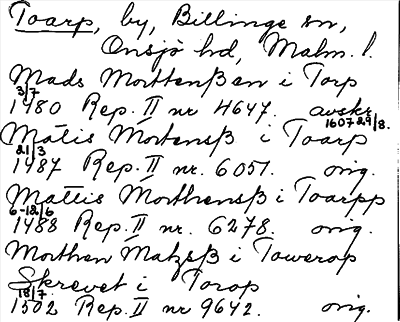 Toarp, by, Billinge sn,
Onsjö hd, Malm. l.
Mads Morttenßen i Torp
3/7
1480 Rep. II nr 4647. avskr.
1607 29/8.
Mátis Mortensß i Toarp
21/3
1487 Rep. II nr. 6051. orig.
Mattis Morthensß i Toarpp
6-12/6
1488 Rep. II nr. 6278. orig.
Morthen Matzsß i Towerop
Skrevet i Torop
18/7
1502 Rep. II nr 9642. orig.